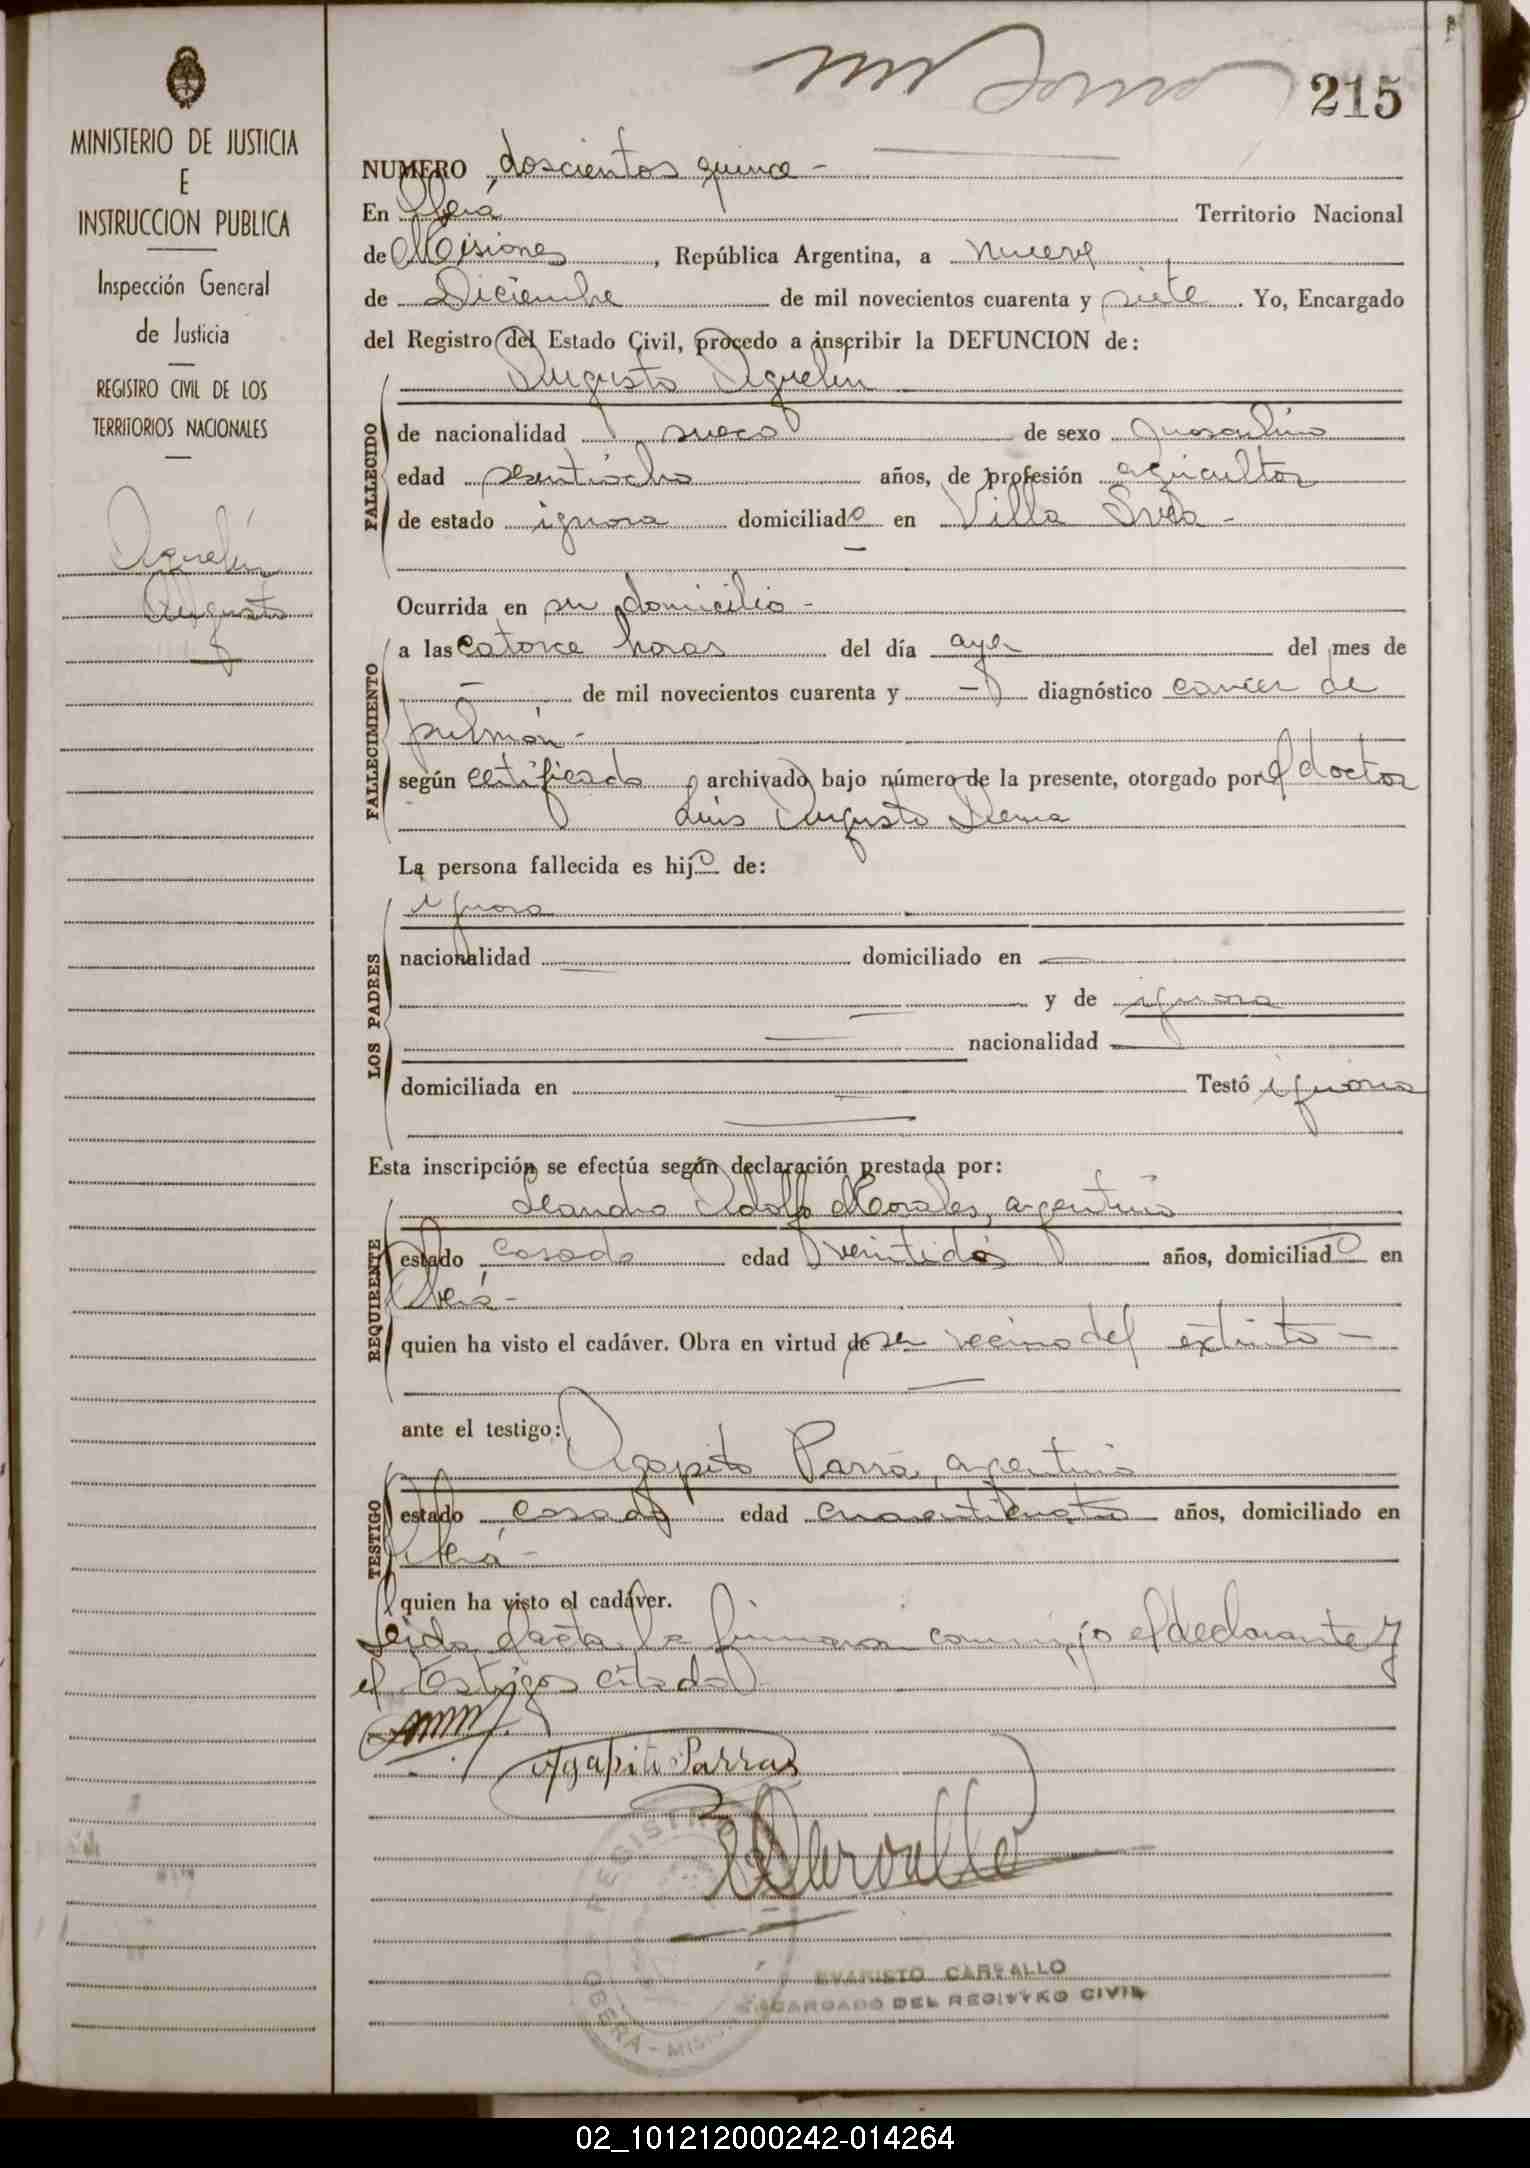 215
MINISTERIO DE JUSTICIA
E
INSTRUCCION PUBLICA
Inspección General
de Justicia
REGISTRO CIVIL DE LOS
TERRITORIOS NACIONALES
Agrelín
Augusto
NUMERO doscientos quince -
En Oberá Territorio Nacional
de Misiones, República Argentina, a nueve
de Diciembre de mil novecientos cuarenta y siete. Yo, Encargado
del Registro del Estado Civil, procedo a inscribir la DEFUNCION de:
Augusto Agrelin
FALLECIDO
de nacionalidad sueco de sexo masculino
edad años, de profesión agricultor
de estado ignora domiciliado en Villa Svea -
FALLECIMIENTO
Ocurrida en su domicilio -
a las catorce horas del día ayer del mes de
- de mil novecientos cuarenta y - diagnóstico cancer de
pulmón -
según certificado archivado bajo número de la presente, otorgado por el doctor
Luis Augusto
La persona fallecida es hijo de:
LOS PADRES
ignora
nacionalidad domiciliado en
y de ignora
nacionalidad
domiciliada en Testó ignora
Esta inscripción se efectúa según declaración prestada por:
REQUIRENTE
Leandro Adolfo Morales, argentino
estado casado edad veintidós años, domiciliado en
Oberá -
quien ha visto el cadáver. Obra en virtud de ser vecino del extinto -
ante el testigo:
TESTIGO
Agapito Parra, argentino
estado casado edad cuarenticuatro años, domiciliado en
Oberá -
quien ha visto el cadáver.
Leida el acta la firmaron conmigo el declarante y
el testigos citado
Agapito Parras
Carvallo
REGISTRO
OBERÁ - MISIONES
EVARISTO CARVALLO
ENCARGADO DEL REGISTRO CIVIL
02_101212000242-014264